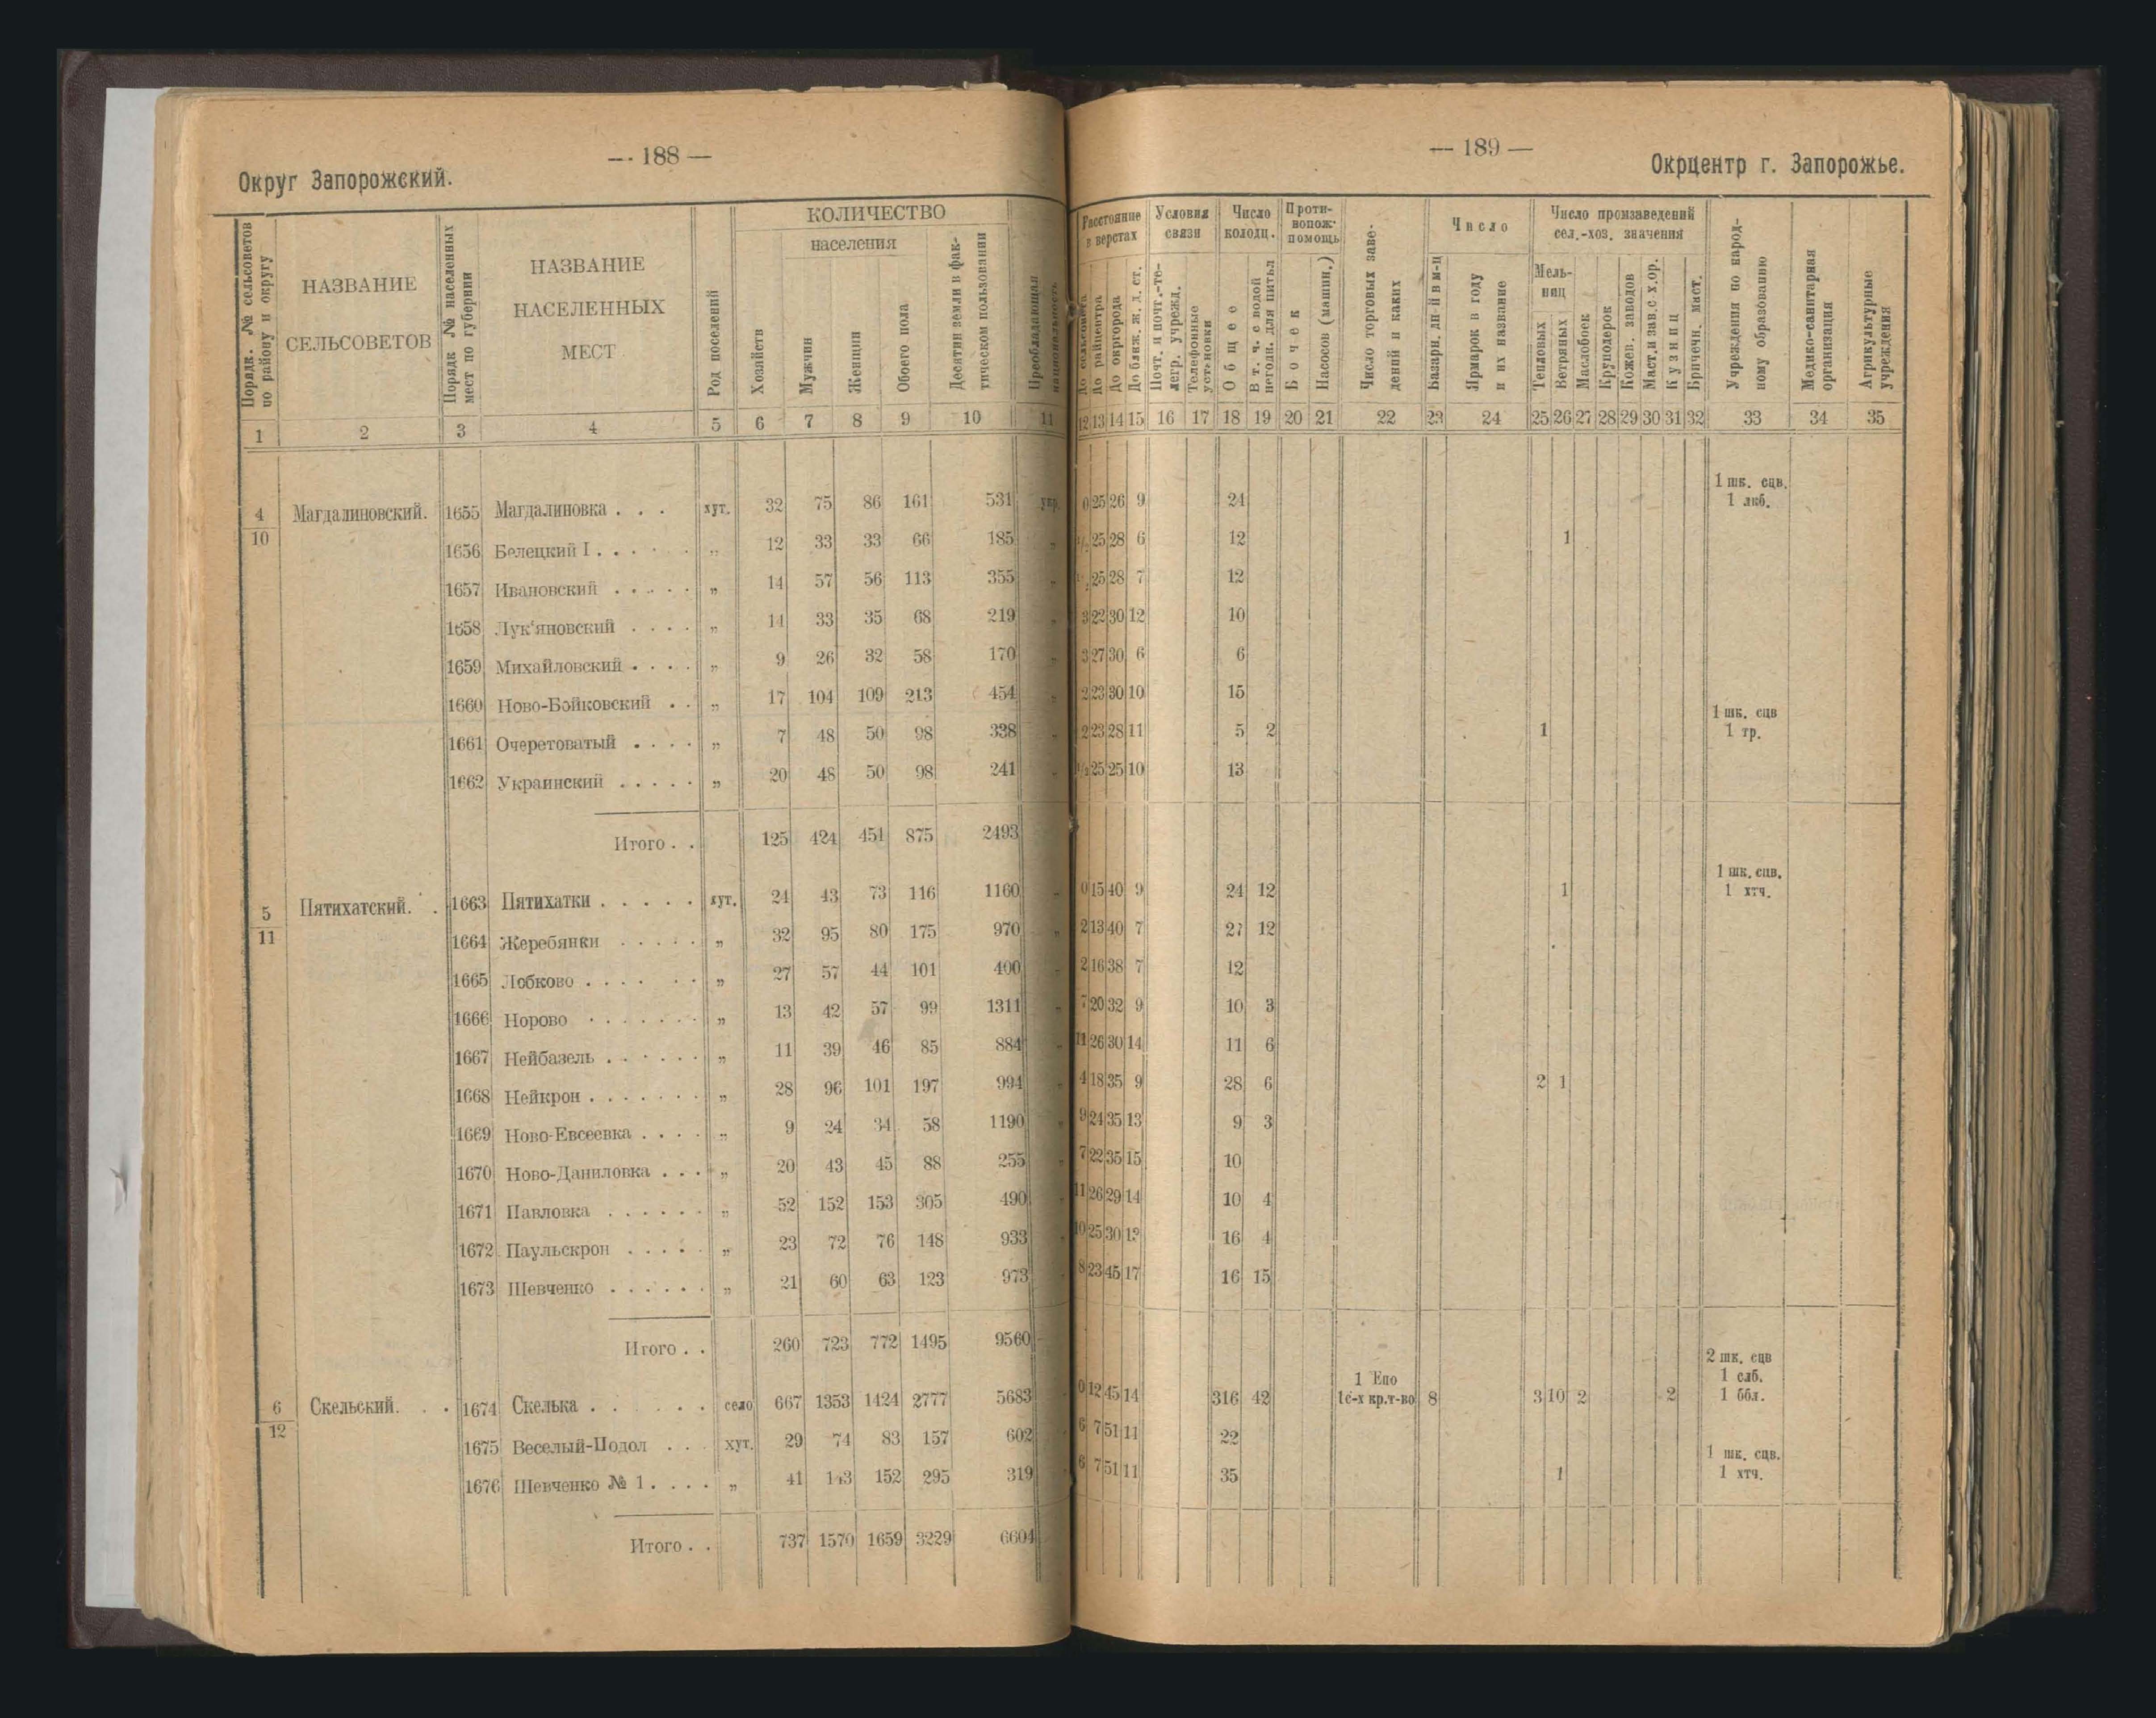 — 188 —
Округ Запорожский.
Порядк. № сельсоветов по району и округу
НАЗВАНИЕ СЕЛЬСОВЕТОВ
Порядк № населенных мест по губернии
НАЗВАНИЕ НАСЕЛЕННЫХ МЕСТ
Род поселений
КОЛИЧЕСТВО
Хозяйств
населения
Мужчин
Женщин
Обоего пола
Десятин земли в фактическом пользовании
Преобладающая национальность
1 2 3 4 5 6 7 8 9 10 11
4/10 Магдалиновский. 1655 Магдалиновка . . . хут. 32 75 86 161 531 укр.
1656 Белецкий I . . . . . „ 12 33 33 66 185 „
1657 Ивановский . . . . . „ 14 57 56 113 355 „
1658 Лук‘яновский . . . . „ 14 33 35 68 219 „
1659 Михайловский . . . . „ 9 26 32 58 170 „
1660 Ново-Бойковский . . „ 17 104 109 213 454 „
1661 Очеретоватый . . . . „ 7 48 50 98 338 „
1662 Украинский . . . . . „ 20 48 50 98 241 „
Итого . . 125 424 451 875 2493
5/11 Пятихатский. . 1663 Пятихатки . . . . . хут. 24 43 73 116 1160 „
1664 Жеребянки . . . . . „ 32 95 80 175 970 „
1665 Лобково . . . . . . „ 27 57 44 101 400 „
1666 Норово . . . . . . . „ 13 42 57 99 1311 „
1667 Нейбазель . . . . . . „ 11 39 46 85 884 „
1668 Нейкрон . . . . . . . „ 28 96 101 197 994 „
1669 Ново-Евсеевка . . . . „ 9 24 34 58 1190 „
1670 Ново-Даниловка . . . „ 20 43 45 88 255 „
1671 Павловка . . . . . . „ 52 152 153 305 490 „
1672 Паульскрон . . . . . „ 23 72 76 148 933 „
1673 Шевченко . . . . . . „ 21 60 63 123 973 „
Итого . . 260 723 772 1495 9560
6/12 Скельский. . . 1674 Скелька . . . . . . село 667 1353 1424 2777 5683
1675 Веселый-Подол . . . хут. 29 74 83 157 602
1676 Шевченко № 1 . . . . „ 41 143 152 295 319
Итого . . 737 1570 1659 3229 6604
— 189 —
Окрцентр г. Запорожье.
Расстояние в верстах
До сельсовета
До райцентра
До окргорода
До ближ. ж. д. ст.
Условия связи
Почт. и почт.-телегр. учрежд.
Телефонные установки
Число колодц.
Общее
В т. ч. с водой негодн. для питья
Противопож. помощь
Бочек
Насосов (машин.)
Число торговых заведений и каких
Число
Базарн. дней в м-ц
Ярмарок в году и их название
Число произаведений сел.-хоз. значения
Мельниц
Тепловых
Ветряных
Маслобоек
Круподерок
Кожев. заводов
Маст. и зав. с. х. ор.
Кузниц
Кирпичн. маст.
Учреждения по народному образованию
Медико-санитарная организация
Агрикультурные учреждения
12 13 14 15 16 17 18 19 20 21 22 23 24 25 26 27 28 29 30 31 32 33 34 35
1 шк. сцв.
0 25 26 9 24 1 лкб.
1/2 25 28 6 12 1
25 28 7 12
3 22 30 12 10
3 27 30 6 6
2 23 30 10 15
1 шк. сцв
2 23 28 11 5 2 1 1 тр.
1/2 25 25 10 13
1 шк. сцв.
0 15 40 9 24 12 1 1 хтч.
2 13 40 7 27 12
2 16 38 7 12
7 20 32 9 10 3
11 26 30 14 11 6
4 18 35 9 28 6 2 1
9 24 35 13 9 3
7 22 35 15 10
11 26 29 14 10 4
10 25 30 13 16 4
8 23 45 17 16 15
2 шк. сцв
1 Епо 1 слб.
0 12 45 14 316 42 1с-х кр.т-во 8 3 10 2 2 1 ббл.
6 7 51 11 22
1 шк. сцв.
6 7 51 11 35 1 1 хтч.